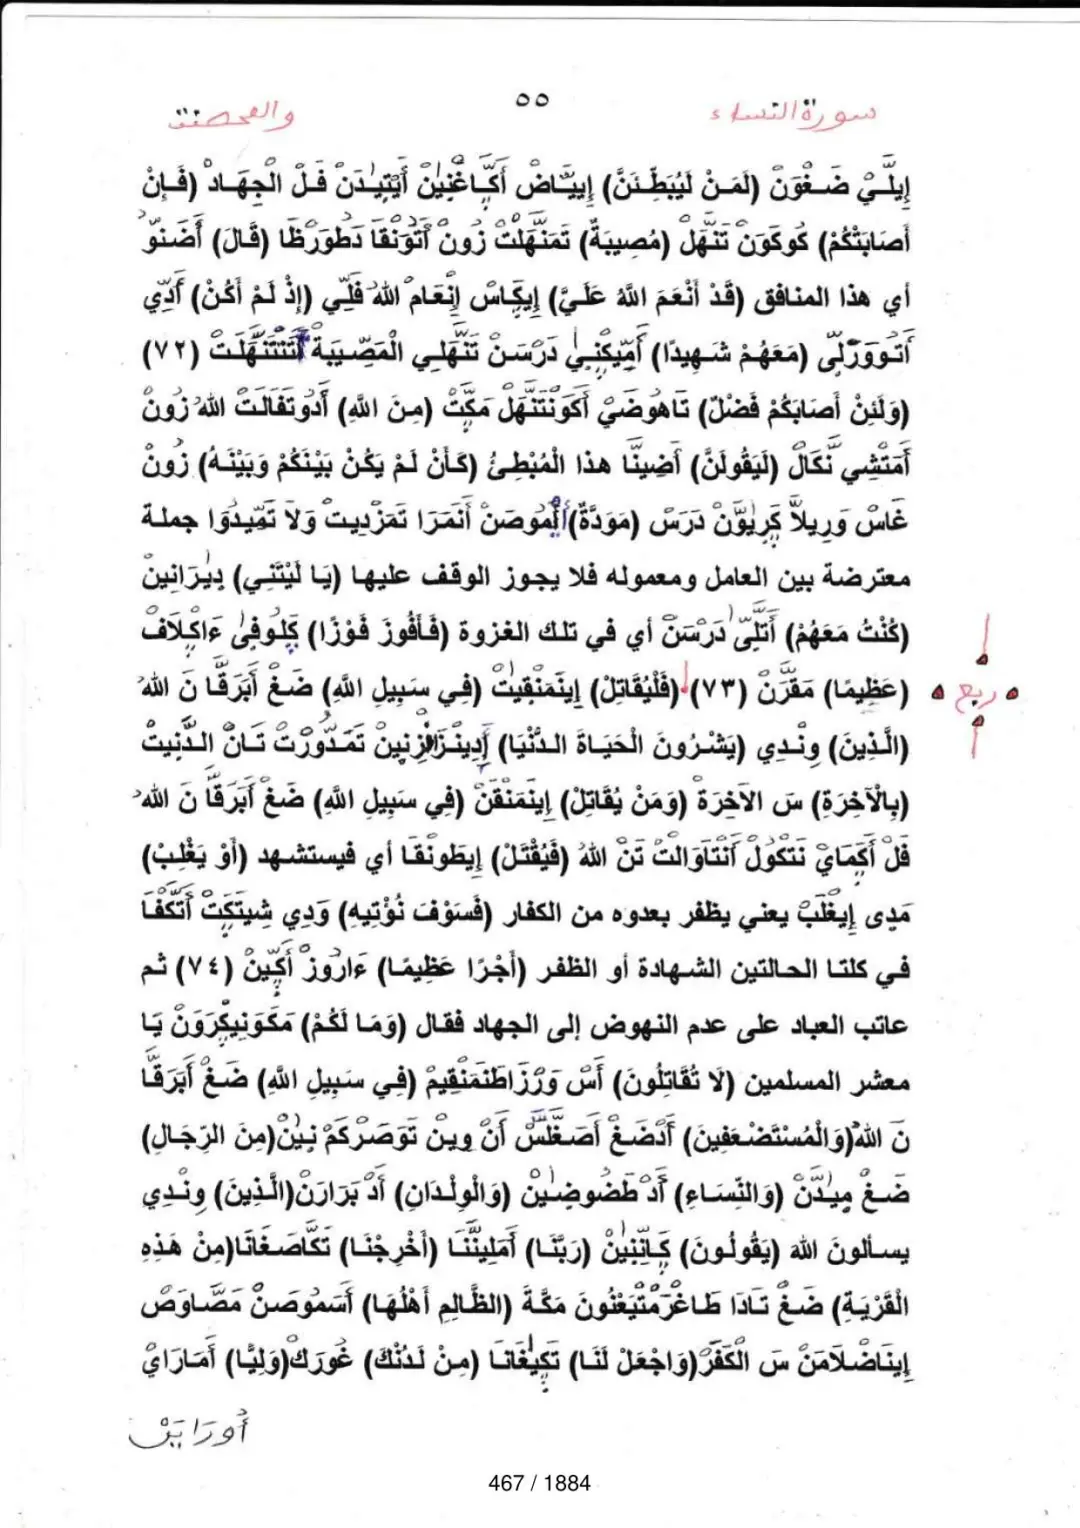 والمحصنت ٥٥ سورة النساء
إيلَيْ ضَغْوَنْ (لَمَنْ لَيُبَطِّئَنَّ) إييَّاضْ أَكَّاغْنِيْنْ أَيْتِيْدَنْ فَلْ الْجِهَادْ (فَإِنْ
أَصَابَتْكُمْ) كُوكَوَنْ تَنْهَلْ (مُصِيبَةٌ) تَمَنْهَلْتْ زُونْ أَتَوَنْقَا دَطُورَظَا (قَالَ) أَضَنُّو
أي هذا المنافق (قَدْ أَنْعَمَ اللهُ عَلَيَّ) إِيكَاسْ إِنْعَامْ اللهُ فَلِّي (إِذْ لَمْ أَكُنْ) أَدِّي
أَتُوَوَرْلَّى (مَعَهُمْ شَهِيدًا) أَمِّيكْنِي دَرْسَنْ تَنْهَلِي الْمَصِّيبَةْ أَتَنْتَنْهَلَتْ (٧٢)
(وَلَئِنْ أَصَابَكُمْ فَضْلٌ) تَاهُوضَيْ أَكَوَنْتَنْهَلْ مَكَّتْ (مِنَ اللهِ) أَدُوتَفَالَتْ اللهُ زُونْ
أَمَتْشِي نْكَالْ (لَيَقُولَنَّ) أَضِينَّا هذا الْمُبْطِئُ (كَأَنْ لَمْ يَكُنْ بَيْنَكُمْ وَبَيْنَهُ) زُونْ
غَاسْ وَرِيلاَ كَرِيْوَّنْ دَرَسْ (مَوَدَّةٌ) أَلْمُوصَنْ أَنْمَرَا تَمَزْدِيتْ وَلاَ تَمِّيدُوَا جملة
معترضة بين العامل ومعموله فلا يجوز الوقف عليها (يَا لَيْتَنِي) دِيْرَانِينْ
(كُنْتُ مَعَهُمْ) أَتَلِّيْ دَرْسَنْ أي في تلك الغزوة (فَأَفُوزَ فَوْزًا) كَلُوفِيْ ءَاكْلَافْ
(عَظِيمًا) مَقَّرَنْ (٧٣) (فَلْيُقَاتِلْ) إِينَمَنْقِيتْ (فِي سَبِيلِ اللهِ) ضَغْ أَبَرَقَّا نَ اللهُ ربع
(الَّذِينَ) وِنْدِي (يَشْرُونَ الْحَيَاةَ الدُّنْيَا) إِدِينْزَازْنِينْ تَمَدُّورْتْ تَانْ الدُّنِيتْ
(بِالْآخِرَةِ) سَ الآخِرَةْ (وَمَنْ يُقَاتِلْ) إِينَمَنْقَنْ (فِي سَبِيلِ اللهِ) ضَغْ أَبَرَقَّا نَ اللهُ
فَلْ أَكَمَايْ نَتَكُولْ أَنْتَاوَالَتْ تَنْ اللهُ (فَيُقْتَلْ) إِيطَونْقَا أي فيستشهد (أَوْ يَغْلِبْ)
مَدِى إِيغْلَبْ يعني يظفر بعدوه من الكفار (فَسَوْفَ نُؤْتِيهِ) وَدِي شِيتَكِتْ أَتَّكْفَا
في كلتا الحالتين الشهادة أو الظفر (أَجْرًا عَظِيمًا) ءَارُوزْ أَكِّينْ (٧٤) ثم
عاتب العباد على عدم النهوض إلى الجهاد فقال (وَمَا لَكُمْ) مَكَوَنِيكْرَوَنْ يَا
معشر المسلمين (لَا تُقَاتِلُونَ) أَسْ وَرْزَاطَنَمَنْقِيمْ (فِي سَبِيلِ اللهِ) ضَغْ أَبَرَقَّا
نَ اللهْ (وَالْمُسْتَضْعَفِينَ) أَدْضَغْ أَصَغْلَسْ أَنْ وِينْ تَوَصَرْكَمْ نِيْنْ (مِنَ الرِّجَالِ)
ضَغْ مِيدَّنْ (وَالنِّسَاءِ) أَدْ طَضُوضِيْنْ (وَالْوِلْدَانِ) أَدْ بَرَارَنْ (الَّذِينَ) وِنْدِي
يسألونَ الله (يَقُولُونَ) كَانِّيْنِيْنْ (رَبَّنَا) أَمَلِينَّنَا (أَخْرِجْنَا) تَكَّاصَغَانَا (مِنْ هَذِهِ
الْقَرْيَةِ) ضَغْ تَادَا طَاغْرَمْتْيَعْنُونَ مَكَّةَ (الظَّالِمِ أَهْلُهَا) أَسَمُوصَنْ مَصَّاوَصْ
إِينَاضْلاَمَنْ سَ الْكَفَرْ (وَاجْعَلْ لَنَا) تَكِيْغَانَا (مِنْ لَدُنْكَ) غُورَكْ (وَلِيًّا) أَمَارَايْ
أورايڽ
467 / 1884